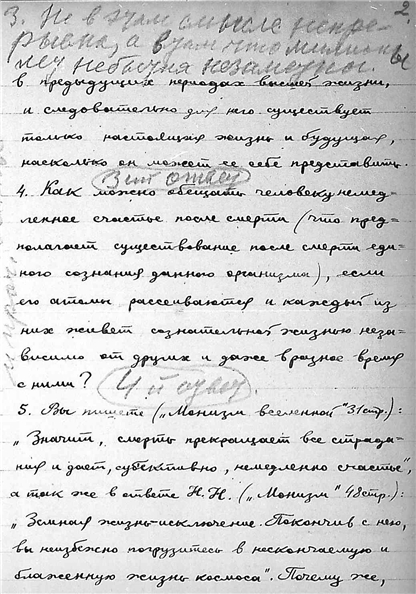 3. Не в этом смысле непре-
рывна, а в том что миллионы
лет небытия незаметны.
2
в предыдущих периодах высшей жизни,
и следовательно для него существует
только настоящая жизнь и будущая,
насколько он может ее себе представить.
3ий ответ
4. Как можно обещать человеку немед-
ленное счастье после смерти (что пред-
полагает существование после смерти еди-
ного сознания данного организма), если
его атомы рассеиваются и каждый из
них живет сознательной жизнью неза-
висимо от других и даже в разное время
с ними?
4й ответ.
5. Вы пишете („Монизм вселенной" 31 стр.):
„Значит, смерть прекращает все страда-
ния и дает, субъективно, немедленно счастье",
а так же в ответе Н.Н. („Монизм" 48 стр.):
„Земная жизнь-исключение. Покончив с нею,
вы неизбежно погрузитесь в нескончаемую и
блаженную жизнь космоса". Почему же,